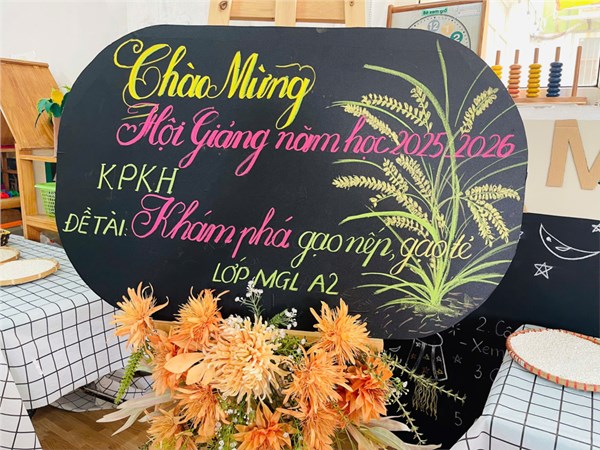 Chào Mừng
Hội Giảng năm học 2025-2026
KPKH
ĐỀ TÀI: Khám phá gạo nếp, gạo tẻ
LỚP MGL A2
M
2. Cô
- Xem
3 C
5